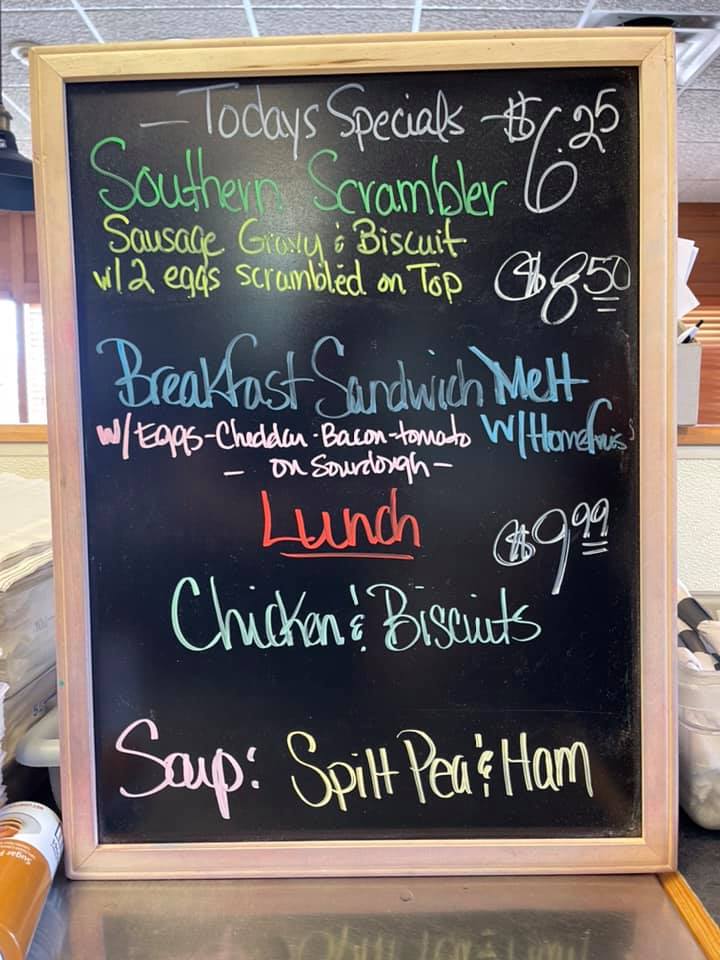 - Todays Specials - $6.25
Southern Scrambler
Sausage Gravy & Biscuit
w/ 2 eggs scrambled on Top
$8.50
Breakfast Sandwich Melt
w/ Eggs - Cheddar - Bacon - tomato w/ Homefries
- on Sourdough -
Lunch
$9.99
Chicken & Biscuits
Soup: Split Pea & Ham
Sugar